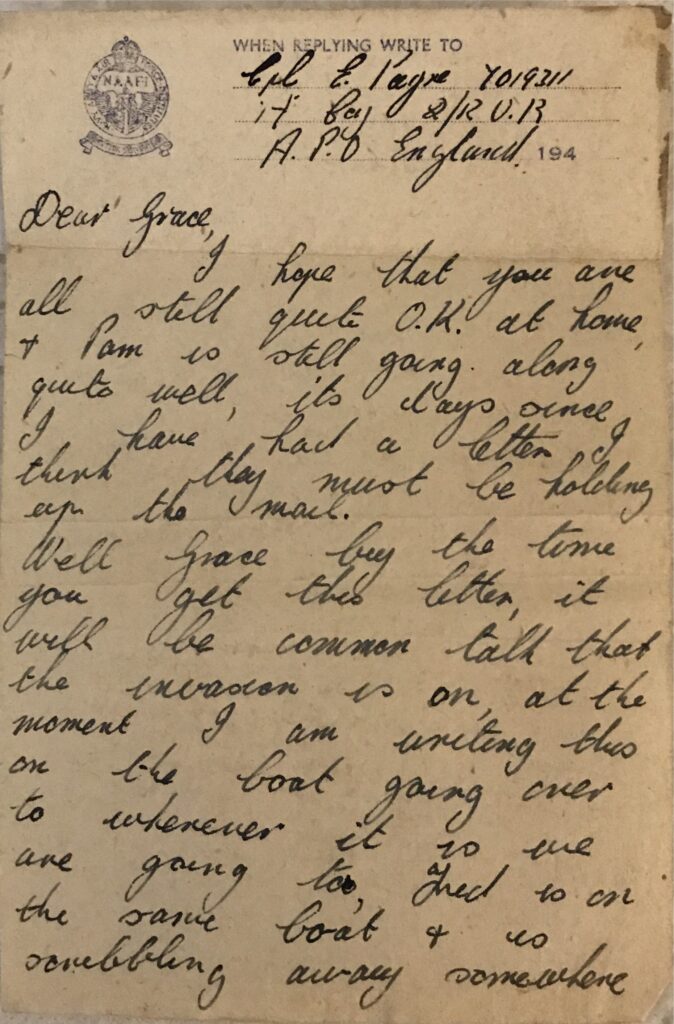 NAAFI
WHEN REPLYING WRITE TO
Cpl E. Payne 7019311
Coy 2/R U.R
A.P.O England. 194
Dear Grace,
I hope that you are
all still quite O.K. at home,
& Pam is still going along
quite well, its days since
I have had a letter I
think they must be holding
up the mail.
Well Grace buy the time
you get this letter, it
will be common talk that
the invasion is on, at the
moment I am writing this
on the boat going over
to wherever it is we
are going to, Fred is on
the same boat & is
scribbling away somewhere